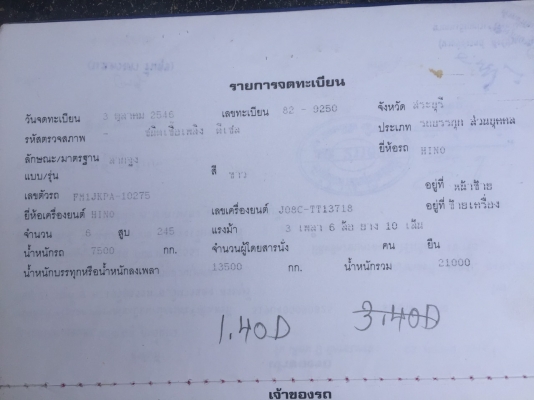 รายการจดทะเบียน
วันจดทะเบียน 3 ตุลาคม 2546 เลขทะเบียน 82 - 9250 จังหวัด สระบุรี
รหัสตรวจสภาพ - ชนิดเชื้อเพลิง ดีเซล ประเภท รถบรรทุก ส่วนบุคคล
ลักษณะ/มาตรฐาน ยี่ห้อรถ HINO
แบบ/รุ่น สี ขาว
เลขตัวรถ FM1JKPA-10275 อยู่ที่ หน้าซ้าย
ยี่ห้อเครื่องยนต์ HINO เลขเครื่องยนต์ J08C-TT13718 อยู่ที่ ซ้ายเครื่อง
จำนวน 6 สูบ 245 แรงม้า 3 เพลา 6 ล้อ ยาง 10 เส้น
น้ำหนักรถ 7500 กก. จำนวนผู้โดยสารนั่ง คน ยืน
น้ำหนักบรรทุกหรือน้ำหนักลงเพลา 13500 กก. น้ำหนักรวม 21000
1.40D 3.40D
เจ้าของรถ